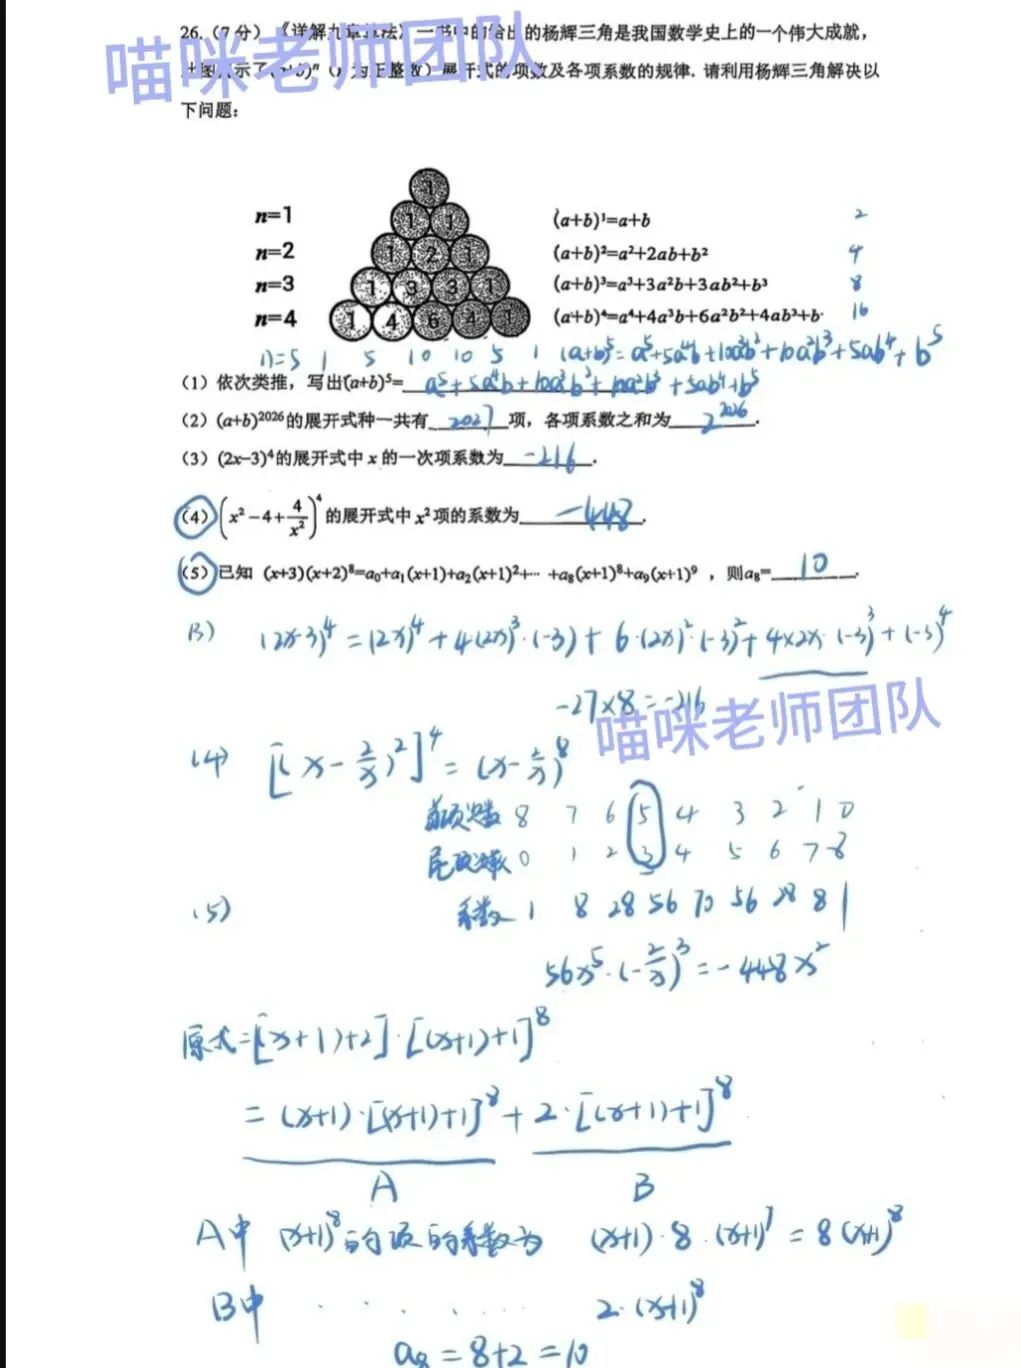 26.(7分)《详解九章算法》一书中的给出的杨辉三角是我国数学史上的一个伟大成就,
喵咪老师团队
(a+b)ⁿ(n为正整数)展开式的项数及各项系数的规律.请利用杨辉三角解决以
下问题:
1
n=1 1 1 (a+b)¹=a+b 2
n=2 1 2 1 (a+b)²=a²+2ab+b² 4
n=3 1 3 3 1 (a+b)³=a³+3a²b+3ab²+b³ 8
n=4 1 4 6 4 1 (a+b)⁴=a⁴+4a³b+6a²b²+4ab³+b 16
n=5 1 5 10 10 5 1 (a+b)⁵=a⁵+5a⁴b+10a³b²+10a²b³+5ab⁴+b⁵
(1)依次类推,写出(a+b)⁵= a⁵+5a⁴b+10a³b²+10a²b³+5ab⁴+b⁵
(2)(a+b)²⁰²⁶的展开式种一共有 2027 项,各项系数之和为 2²⁰²⁶ .
(3)(2x-3)⁴的展开式中x的一次项系数为 -216 .
(4)(x²-4+4/x²)⁴的展开式中x²项的系数为 -448 .
(5)已知 (x+3)(x+2)⁸=a₀+a₁(x+1)+a₂(x+1)²+…+a₈(x+1)⁸+a₉(x+1)⁹,则a₈= 10 .
(3) (2x-3)⁴=(2x)⁴+4(2x)³·(-3)+6·(2x)²·(-3)²+4×2x·(-3)³+(-3)⁴
-27×8=-216
喵咪老师团队
(4) [(x-2/x)²]⁴=(x-2/x)⁸
首项次数 8 7 6 5 4 3 2 1 0
尾项次数 0 1 2 3 4 5 6 7 8
(5) 系数 1 8 28 56 70 56 28 8 1
56x⁵·(-2/x)³=-448x²
原式=[(x+1)+2]·[(x+1)+1]⁸
=(x+1)·[(x+1)+1]⁸+2·[(x+1)+1]⁸
A B
A中 (x+1)⁸的项的系数为 (x+1)·8·(x+1)⁷=8(x+1)⁸
B中 · · · · · · 2·(x+1)⁸
a₈=8+2=10